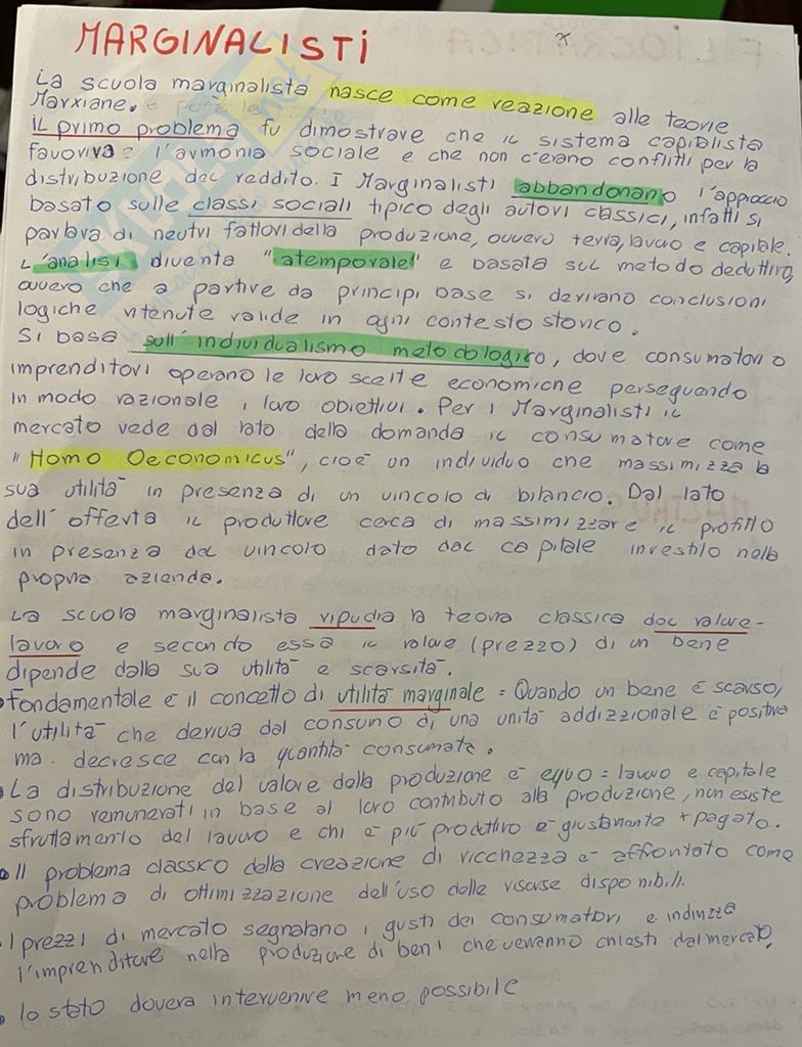 MARGINALISTI
La scuola marginalista nasce come reazione alle teorie
Marxiane.
IL primo problema fu dimostrare che il sistema capitalista
favoriva l'armonia sociale e che non c'erano conflitti per la
distribuzione del reddito. I Marginalisti abbandonano l'approccio
basato sulle classi sociali tipico degli autori classici, infatti si
parlava di neutri fattori della produzione, ovvero terra, lavoro e capitale.
L'analisi diventa "atemporale" e basata sul metodo deduttivo,
ovvero che a partire da principi base si derivano conclusioni
logiche ritenute valide in ogni contesto storico.
Si basa sull'individualismo metodologico, dove consumatori o
imprenditori operano le loro scelte economiche perseguendo
in modo razionale i loro obiettivi. Per i Marginalisti il
mercato vede dal lato della domanda il consumatore come
"Homo Oeconomicus", cioè un individuo che massimizza la
sua utilità in presenza di un vincolo di bilancio. Dal lato
dell'offerta il produttore cerca di massimizzare il profitto
in presenza del vincolo dato dal capitale investito nella
propria azienda.
La scuola marginalista ripudia la teoria classica del valore-
lavoro e secondo essa il valore (prezzo) di un bene
dipende dalla sua utilità e scarsità.
• Fondamentale è il concetto di utilità marginale: Quando un bene è scarso,
l'utilità che deriva dal consumo di una unità addizzionale è positiva
ma decresce con la quantità consumata.
• La distribuzione del valore della produzione è equo: lavoro e capitale
sono remunerati in base al loro contributo alla produzione, non esiste
sfruttamento del lavoro e chi è più produttivo è giustamente + pagato.
• Il problema classico della creazione di ricchezza è affrontato come
problema di ottimizzazione dell'uso delle risorse disponibili.
• I prezzi di mercato segnalano i gusti dei consumatori e indirizza
l'imprenditore nella produzione di beni che verranno chiesti dal mercato,
• lo stato dovera intervenire meno possibile